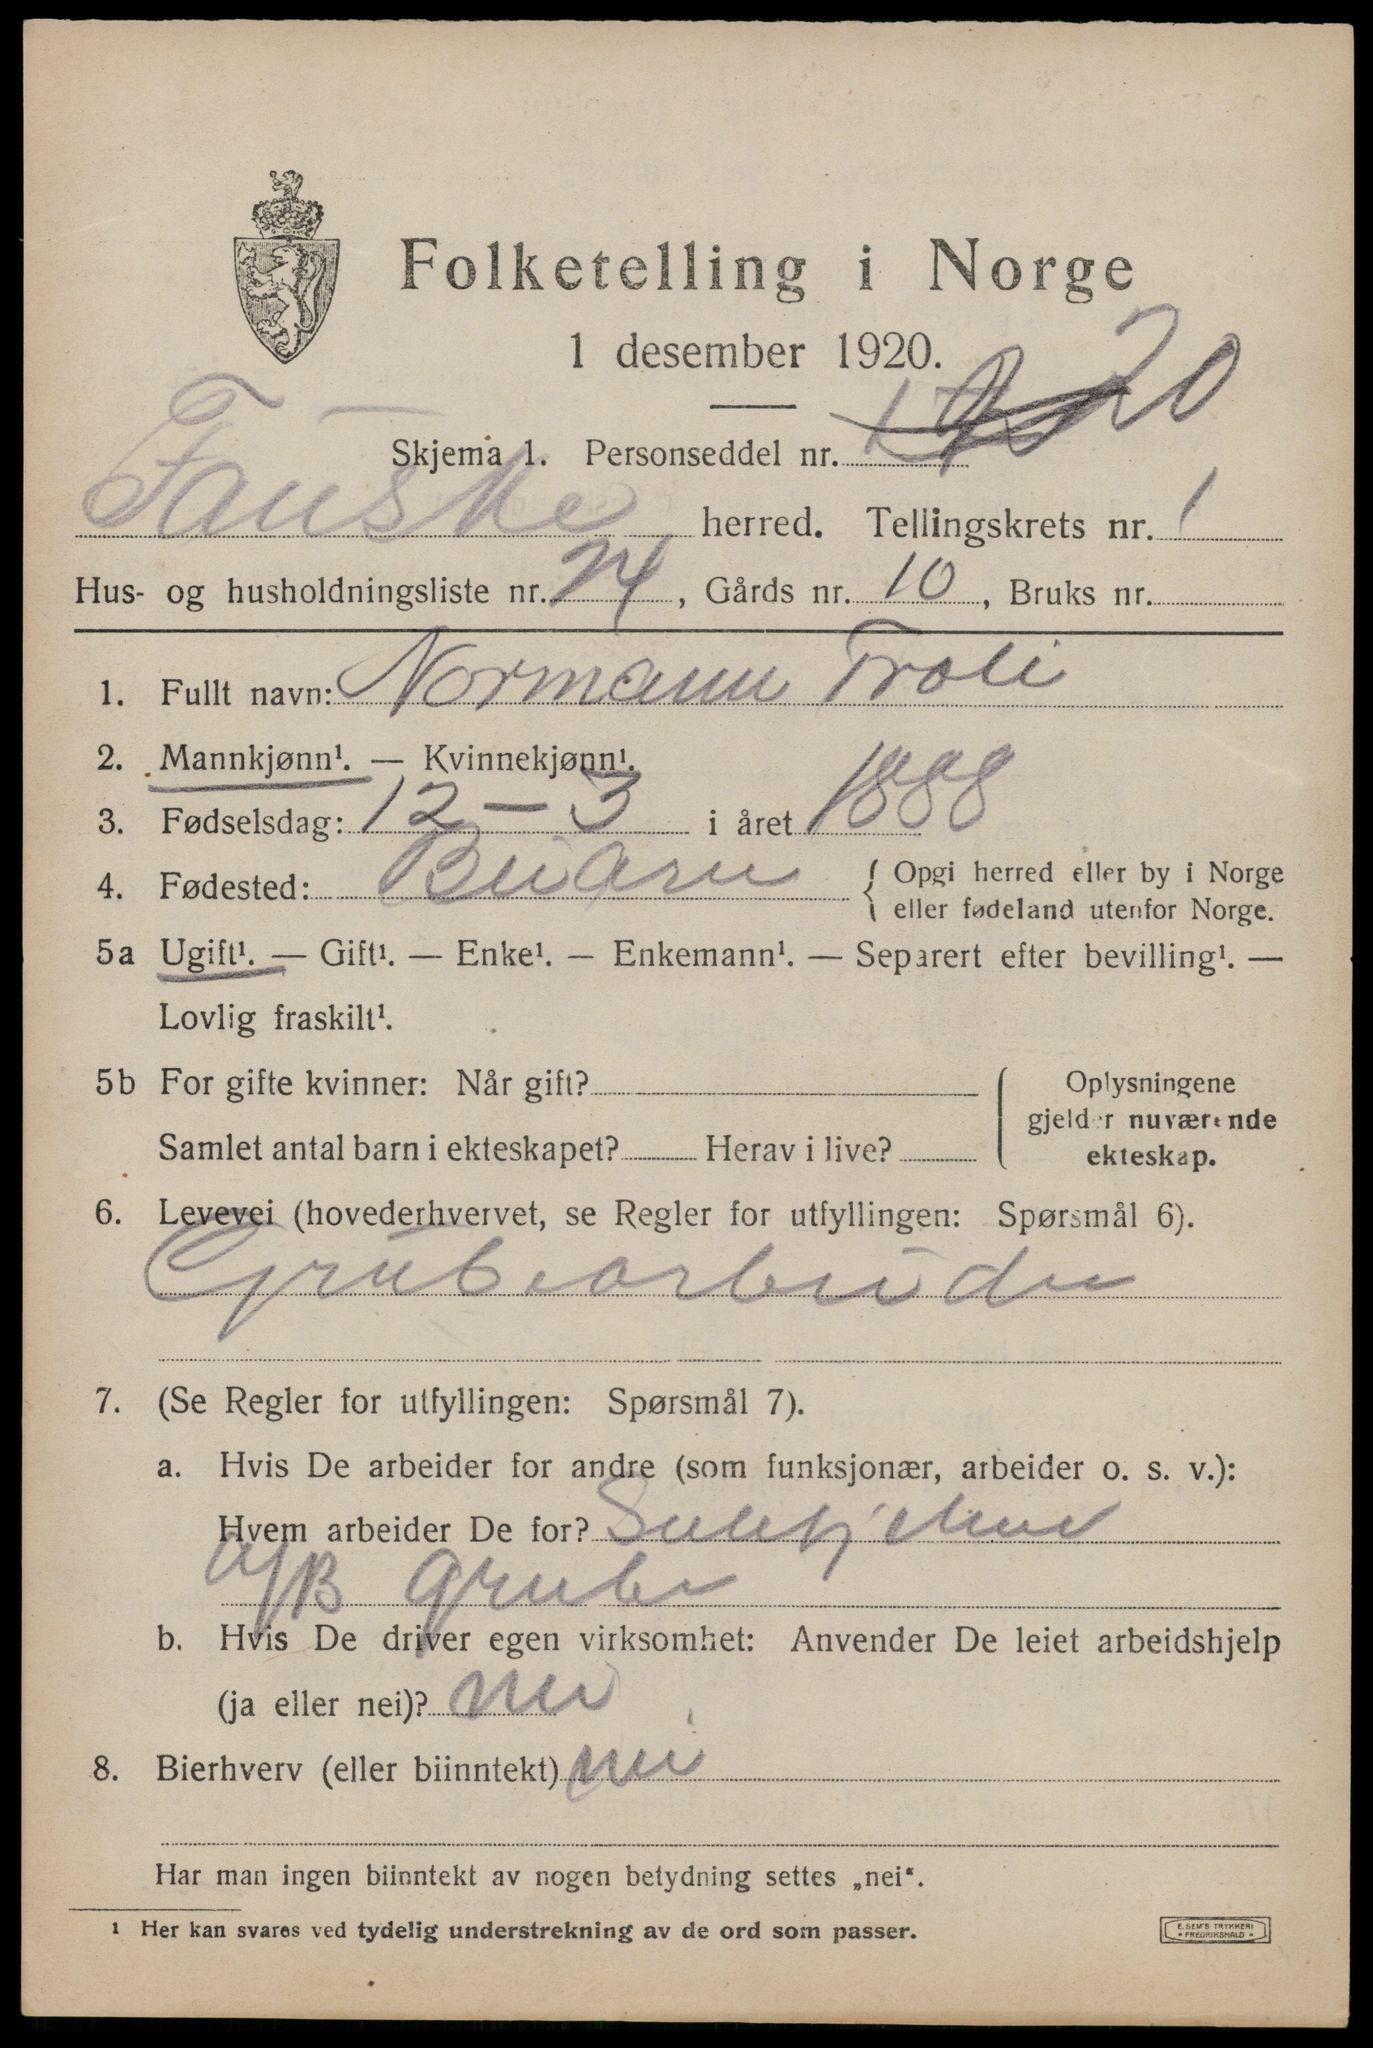 Folketelling i Norge
1 desember 1920.
Skjema 1. Personseddel nr. 20
Fauske herred. Tellingskrets nr. 1
Hus- og husholdningsliste nr. 24, Gårds nr. 10, Bruks nr.
1. Fullt navn: Normann Troli
2. Mannkjønn¹. — Kvinnekjønn¹.
3. Fødselsdag: 12 – 3 i året 1888
4. Fødested: Beiarn { Opgi herred eller by i Norge
eller fødeland utenfor Norge.
5a Ugift¹. — Gift¹. — Enke¹. — Enkemann¹. — Separert efter bevilling¹. —
Lovlig fraskilt¹.
5b For gifte kvinner: Når gift? { Oplysningene
gjelder nuværende
Samlet antal barn i ekteskapet? Herav i live? ekteskap.
6. Levevei (hovederhvervet, se Regler for utfyllingen: Spørsmål 6).
Grubearbeider
7. (Se Regler for utfyllingen: Spørsmål 7).
a. Hvis De arbeider for andre (som funksjonær, arbeider o. s. v.):
Hvem arbeider De for?
A/B Gruber
b. Hvis De driver egen virksomhet: Anvender De leiet arbeidshjelp
(ja eller nei)? nei
8. Bierhverv (eller biinntekt) nei
Har man ingen biinntekt av nogen betydning settes „nei“.
¹ Her kan svares ved tydelig understrekning av de ord som passer.
E. SEM'S TRYKKERI
• FREDRIKSHALD •